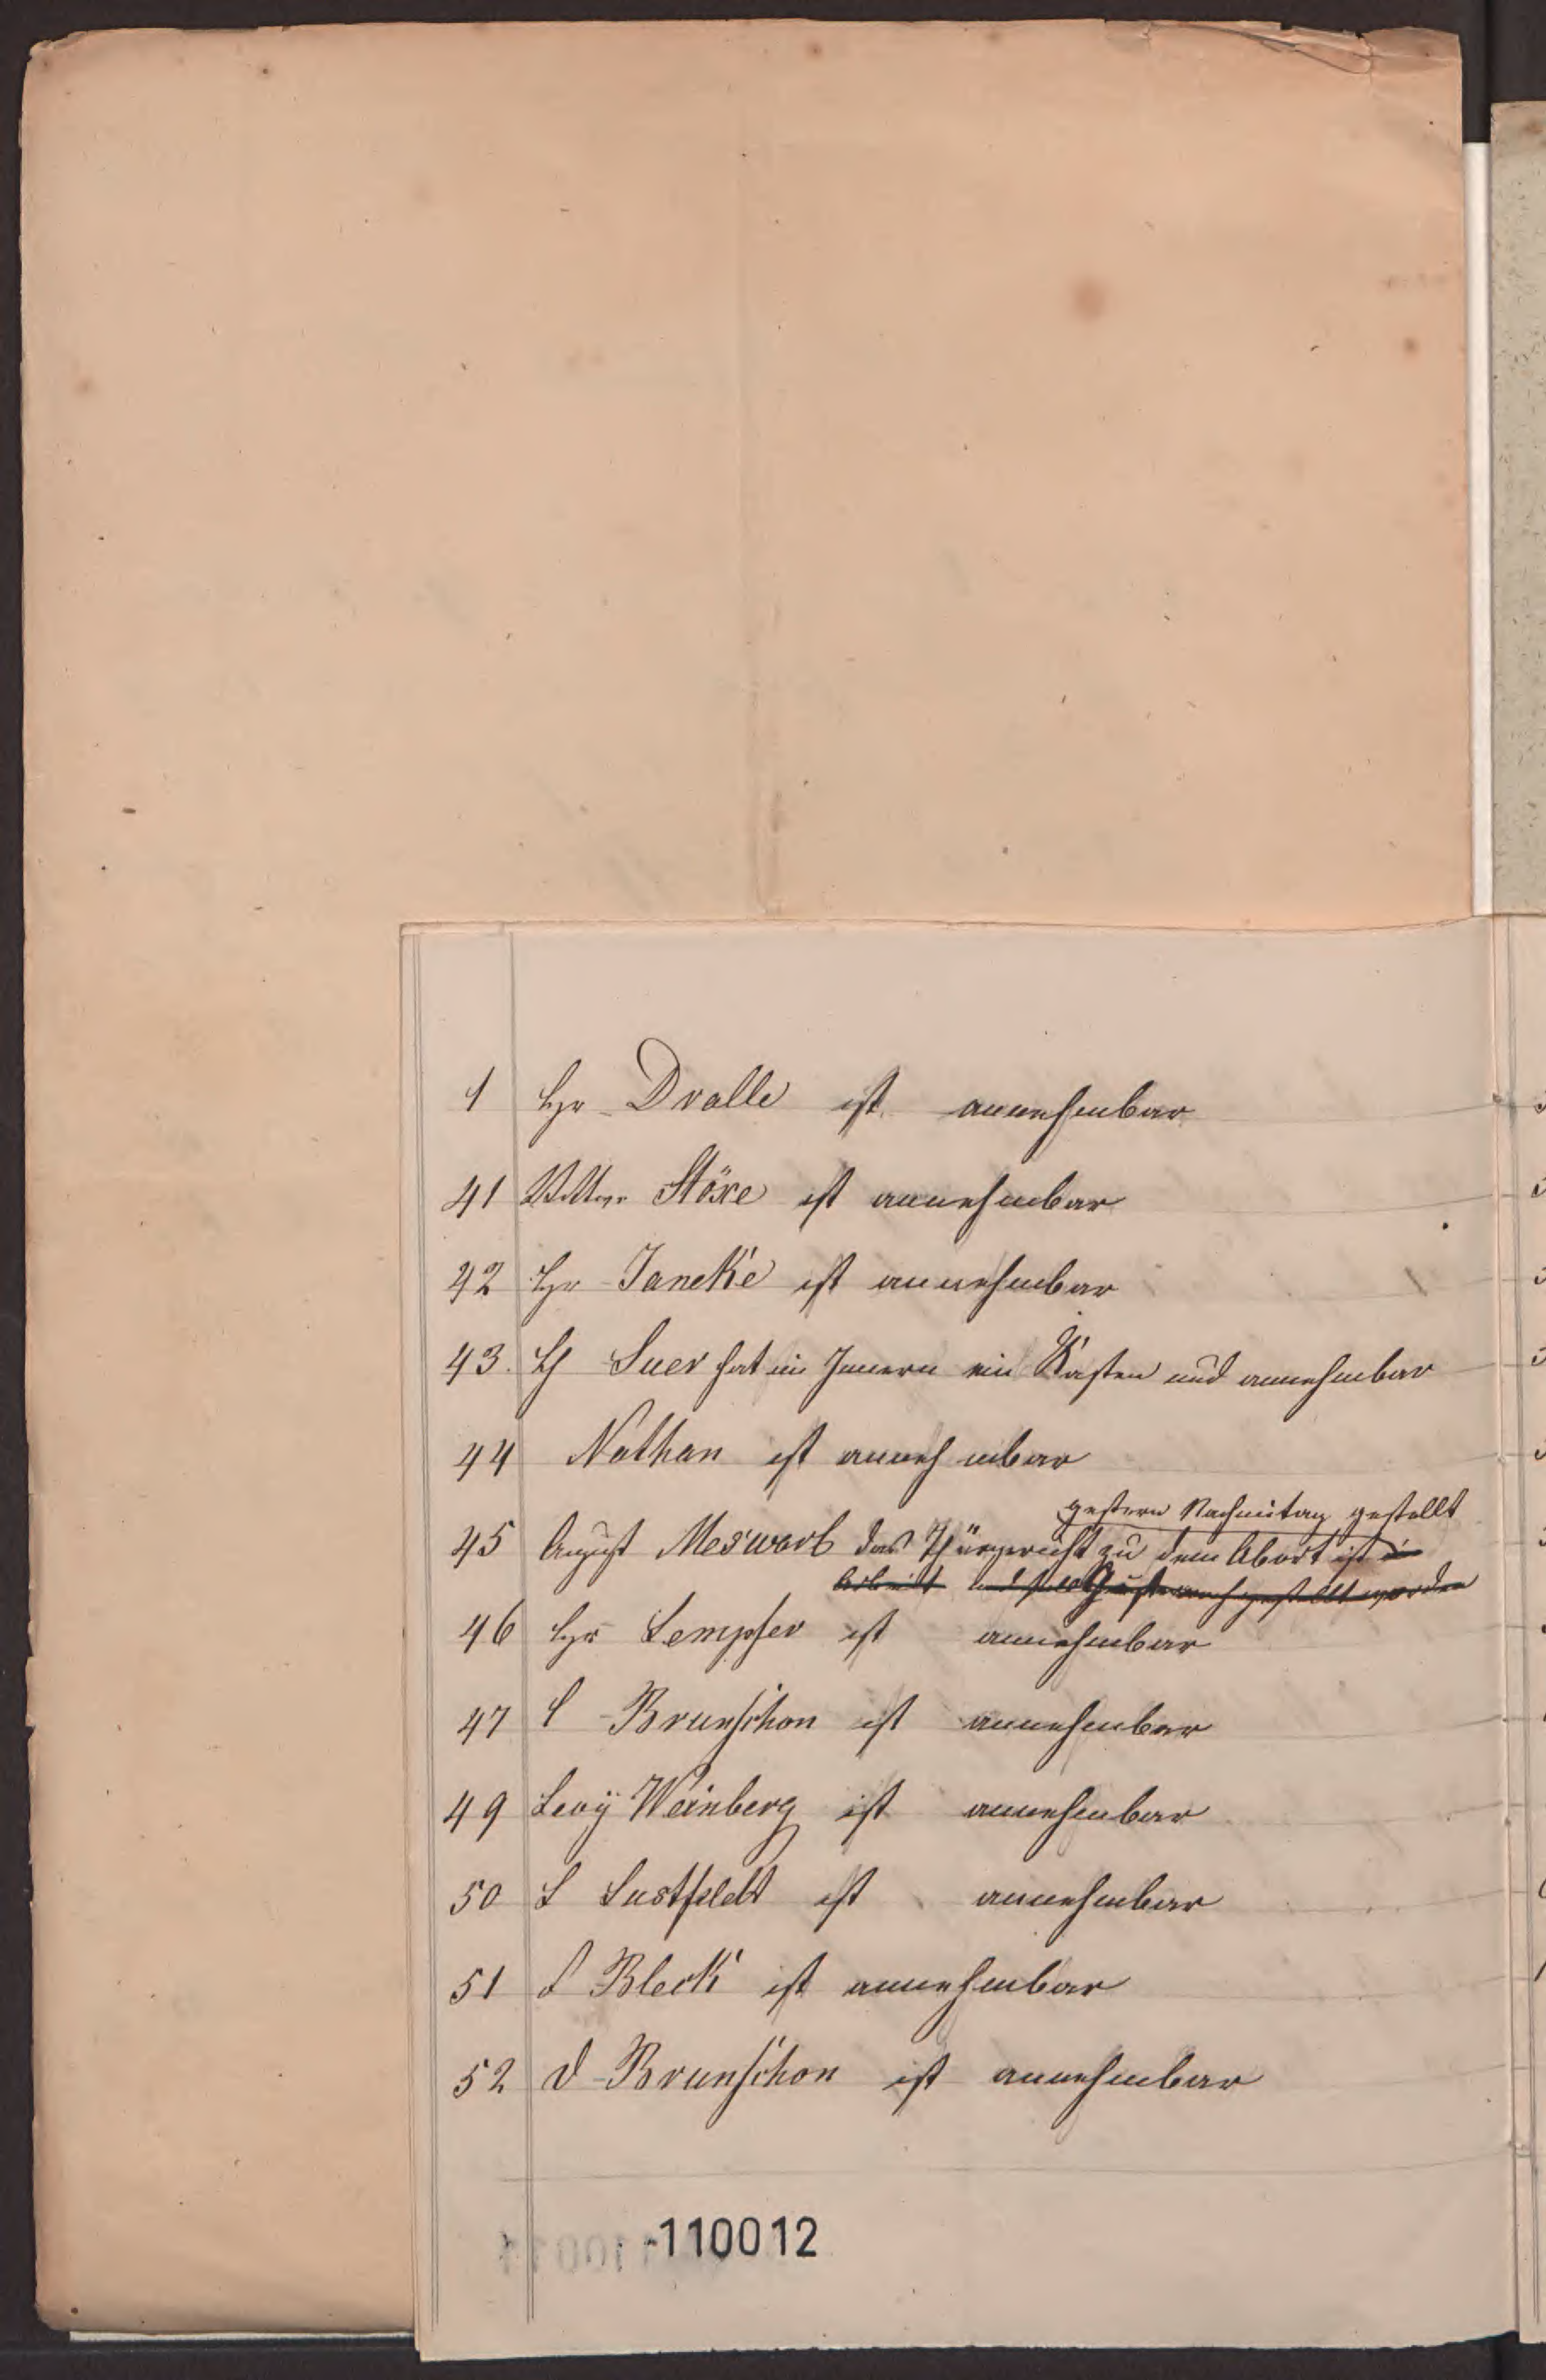 1 Hr Dralle ist annehmbar
41 Stöxe ist annehmbar
42 Hr Jancke ist annehmbar
43. H Suer hat im Innern ein Kasten und annehmbar
44 Nathan ist annehmbar
gestern Nachmitag gestellt
45 August Meswarb das Thürgericht zu dem Abort ist in
Arbeit gestellt worden
46 Hr Lempfer ist annehmbar
47 L Brunschon ist annehmbar
49 Levÿ Weinberg ist annehmbar
50 L Lustfeldt ist annehmbar
51 Bleck ist annehmbar
52 D Brunschon ist annehmbar
110012